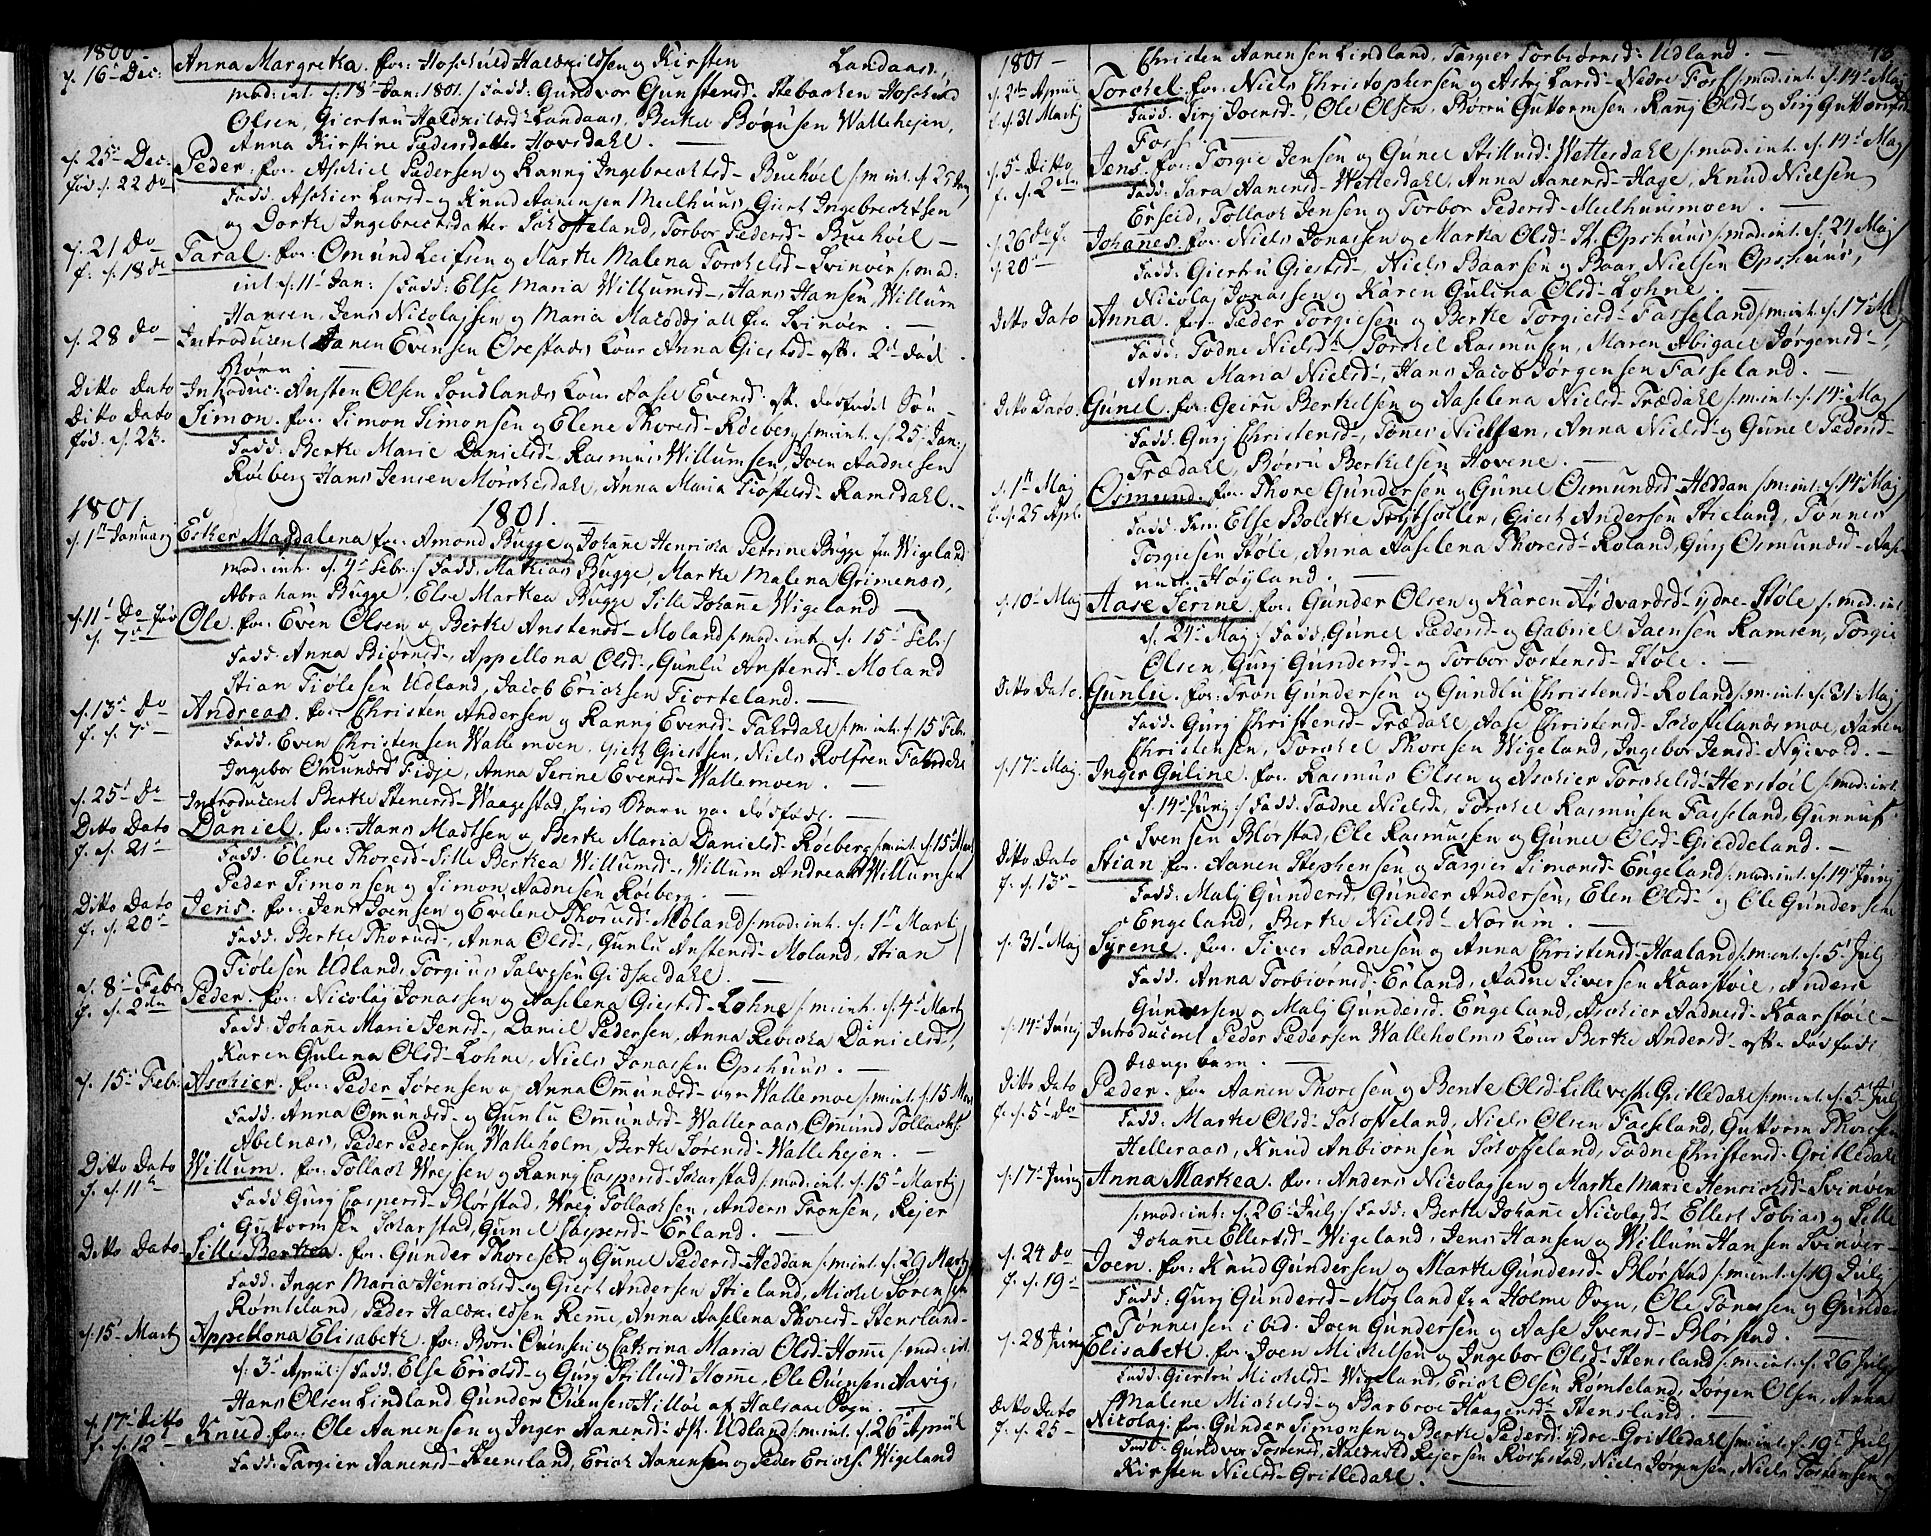 1800
d. 16 Dec: Anna Margreta. for: Hoskuld Haldvildsen og Kirsten Landaas
mod: int. d. 18 Jan: 1801. Fadd: Gundvor Gunstensd: Stebacken
Olsen, Giertru Landaas, Berte Wallehejen,
Anna Kirstine Pedersdatter Hovsdahl.
d. 25 Dec: Peder. for: Aschiel Pedersen og Ranni Ingebrechtsd: Buehøel
fød d. 22 do Fadd: Aschier Larsd: og Knud Aanensen Meelhuus, Giert Ingebrechtsen
og Dorte Ingebrectsdatter Schoffeland, Torbor Pedersd: Buehøel
d. 21 do Taral. for: Omund Leifsen og Marte Malena Torchelsd: Svinøer
f. d. 18 do int d. 11 Jan: Fadd: Else Maria Willumsd:, Hans Hansen, Willum
Hansen, Jens Nicolajsen og Maria alle fra Svinøer.
d. 28 do Introduceret Aanen Evensen Ørestads Kone Anna Giertsd: eft: 2 død
Børn.
Ditto Dato Introduc: Ansten Olsen Loudlands Kone Aase Evensd: eft: dødfød Søn
Ditto Dato Simon. for: Simon Simonsen og Elene Thoresd: Røeberg m: int. d. 25 Jan:
fød. d. 23. Fadd: Berte Marie Danielsd: Rasmus Willumsen, Joen Aadnesen
Røeberg Hans Jensen, Anna Maria Ramsdahl.
1801. 1801.
d. 1 Januarj Ester Magdalena for: Amond Bugge og Johanne Henricha Petrine Bugge fra Wigeland
mod: int. d. 4 Febr: Fadd: Mathias Bugge, Marte Malena Grimenæs,
Abraham Bugge, Else Martea Bugge Sille Johanne Wigeland
d. 11 Do fød Ole. for: Even Olsen og Berte Anstensd: Moland mod: int. d. 15 Febr:
d. 7 Fadd: Anna Biørnsd:, Appellona Olsd:, Gunlu Anstensd: Moland
Stian Tiølesen Udland, Jacob Erichsen Fiorteland.
d. 13 do Andreas. for: Christen Andersen og Ranni Evensd: Fahrdahl m: int. d. 15 Febr.
f. d. 7 Fadd: Even Christensen Wallemoen, Giert Giertsen, Niels Rolfsen
Ingebor Omundsd: Fidje, Anna Serine Evensd: Wallemoen.
d. 25 do Introduceret Berte Stenersd: Waagestad, hvis Barn var dødfødt.
Ditto Dato Daniel. for: Hans Madtsen og Berte Maria Danielsd: Røeberg m: int. d. 15
f. d. 21 Fadd: Elene Thoresd: Sille Bertea Willumsd: Willum Andreas Willumsen
Peder Simonsen og Simon Aadnesen Røeberg.
Ditto Dato Jens. for: Jens Joensen og Evelene Thorusd: Moland mod: int. d. 1 Martj
f. d. 20 Fadd: Berte Thorusd:, Anna Olsd:, Gunlu Anstensd: Moland, Stian
Tiølesen Udland, Torgius Salvesen Gidskedahl
d. 8 Febr Peder. for: Nicolaj Jonassen og Aaselena Giertsd: Lohne m: int. d. 4 Martj
f. d. 2 Fadd: Johanne Marie Jensd:, Daniel Pedersen, Anna Rebecka Danielsd:
Karen Gulena Olsd: Lohne, Niels Jonassen Opshuus.
d. 15 Febr. Aschier. for: Peder Sørensen og Anna Omundsd: Wallemoe m: int. d. 15
Fadd: Anna Omundsd: og Gunlu Omundsd: Walleraas, Omund Tollachs:
Abelnæs, Peder Pedersen Walleholm, Berte Sørensd: Wallehejen.
Ditto Dato Willum. for: Tollach Wrejsen og Ranni Caspersd: Scharstad mod: int. d. 15 Martj
f. d. 11 Fadd: Gurj Caspersd: Blørstad, Wrej Tollachsen, Anders Tronsen, Rejer
Guttormsen Scharstad, Gunel Caspersd: Erland.
Ditto Dato Sille Bertea. for: Gunder Thoresen og Gunel Pedersd: Heddan m: int. d. 29 Martj
Fadd: Inger Maria Henrichsd: og Giert Andersen Stieland, Michel Sørensen
Rømteland, Peder Haldvildsen Reme, Anna Aaselena Thoresd: Stensland.
d. 15 Martj Appellona Elisabeth. for: Børu Ovensen og Cathrina Maria Olsd: Homme mod: int.
d. 3 April: Fadd: Else Erichsd: og Gurj Stillusd: Homme, Ole Ovensen Aavig,
Hans Olsen Lindland, Gunder Ovensen Hilløe af Halsaae Sogn.
d. 17 ditto Knud. for: Ole Aanensen og Inger Aanensd: Udland m: int. d. 26 April
f. d. 12 Fadd: Targier Aanensd: Steensland, Erich Aanensen og Peder Erichs: Wigeland
1801 Christen Aanensen Lindland, Targier Torbiørnsd: Udland.
d. 2 April Torchel for: Niels Christophersen og Astrj Larsd: Nedre Foss mod: int. d. 14 Maj
d. 31 Martj Fadd: Sirj Joensd:, Ole Olsen, Børru Guttormsen, Ranj Olsd: og Sirj Guttormsd:
Foss.
d. 5 ditto Jens. for: Torgie Jensen og Gunel Stillusd: Wettesdahl mod: int. d. 14 Maj
f. d. 2 Fadd: Sara Aanensd: Wettesdahl, Anna Aanensd: Hage, Knud Nielsen
Erseid, Tollach Jensen og Torbor Pedersd: Meelhuusmoen.
d. 26 do f. Johanes. for: Niels Jonassen og Marta Olsd: St. Opshuus mod: int. d. 24 Maj
d. 20 Fadd: Giertru Giertsd:, Niels Baarsen og Baar Nielsen Opshuus,
Nicolaj Jonassen og Karen Gulina Olsd: Lohne.
Ditto Dato Anna. for: Peder Torgiesen og Berte Torgiesd: Fasseland m: int. d. 17 Maj
Fadd: Todne Nielsd: Torchel Rasmusen, Maren Abigael Jørgensd:,
Anna Maria Nielsd:, Hans Jacob Jørgensen Fasseland.
Ditto Dato. Gunel. for: Geiru Bertelsen og Aaselena Nielsd: Trædahl m: int. d. 14 Maj
Fadd: Gurj Christensd:, Tønes Nielsen, Anna Nielsd: og Gunel Pedersd:
Trædahl, Børu Bertelsen Hovene.
d. 1 Maj Osmund. for: Thore Gundersen og Gunel Osmundsd: Heddan m: int. d. 14 Maj
f. d. 25 Apl. Fadd: Else Bolette, Giert Andersen Stieland, Tønnes
Torgiesen Støle, Anna Aaselena Thoresd: Roland, Gurj Osmundsd:
Høyland.
d. 10 Maj Aase Serine for: Gunder Olsen og Karen Ædvardsd: ydre Støle mod: int
d. 24 Maj Fadd: Gunel Pedersd: og Gabriel Joensen Ramsen, Torgie
Olsen, Gurj Gundersd: og Torbor Tostensd: Støle.
Ditto Dato. Gunlu. for: Tron Gundersen og Gundlu Christensd: Roland m: int. d. 31 Maj
Fadd: Gurj Christensd: Trædahl, Aase Christensd: Schoffelandsmoe, Aanen
Christensen, Torchel Thoresen Wigeland, Ingebor Jensd: Nyevold.
d. 17 Maj Inger Guline. for: Rasmus Olsen og Aschier Torchelsd: Herstøl mod: int.
d. 14 Junj Fadd: Todne Nielsd:, Torchel Rasmusen Fasseland, Gunnuf
Svensen Blørstad, Ole Rasmussen og Gunel Olsd: Gieddeland.
Ditto Dato Stian for: Aanen Stephensen og Targier Simonsd: Engeland mod: int. d. 14 Junj
f. d. 13 Fadd: Malj Gundersd:, Gunder Andersen, Elen Olsd: og Ole Gundersen
Engeland, Berte Nielsd: Norum.
d. 31 Maj Syrene. for: Siver Aadnesen og Anna Christensd: Haaland m: int. d. 5 Julj
Fadd: Anna Torbiørnsd: Erland, Aadne Siversen Kaarstøel, Anders
Gundersen og Malj Gundersd: Engeland, Aschier Aadnesd: Kaarstøel
d. 14 Junj Introduceret Peder Pedersen Walleholms Kone Berte Andersd: eft: dødfødt
drænge barn.
Ditto Dato Peder. for: Aanen Thoresen og Bente Olsd: Gritledahl m: int. d. 5 Julj
f. d. 5 do Fadd: Marte Olsd: Schoffeland, Niels Olsen Fasseland, Guttorm Thoresen
Helleraas, Knud Anbiørnsen Schoffeland, Todne Christensd: Gritledahl
d. 17 Junj Anna Martea. for: Anders Nicolajsen og Marte Marie Henrichsd: Svinøer
mod: int: d. 26 Julj Fadd: Berte Johanne Nicolajsd: Ellert Tobias og Sille
Johanne Ellertsd: Wigeland, Jens Hansen og Willum Hansen Svinøer
d. 24 do Joen. for: Knud Gundersen og Marte Gundersd: Blørstad m: int. d. 19 Julj
f. d. 19 Fadd: Gurj Gundersd: Møgland fra Holme Sogn, Ole Tønesen og Gunder
Tønnesen ibid. Joen Gundersen og Aase Svensd: Blørstad.
d. 28 Junj Elisabeth. for: Joen Michelsen og Ingebor Olsd: Stensland m: int. d. 26 Julj
Fadd: Giertru Michelsd: Wigeland, Erich Olsen Rømteland, Jørgen Olsen, Anna
Malene Michelsd: og Barbroe Haagensd: Stensland.
Ditto Dato Nicolaj. for: Gunder Simonsen og Berte Pedersd: ydre Gritledahl m: int. d. 19 Julj
f. d. 25 Fadd: Gundvor Tostensd:, Rejersen, Niels Jørgensen, Niels Tostensen og
Kirsten Nielsd: Gritledahl.